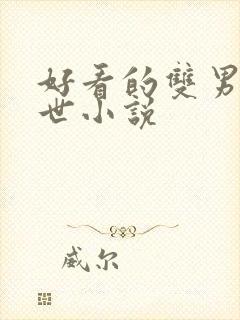 好看的雙男
世小説
威尔